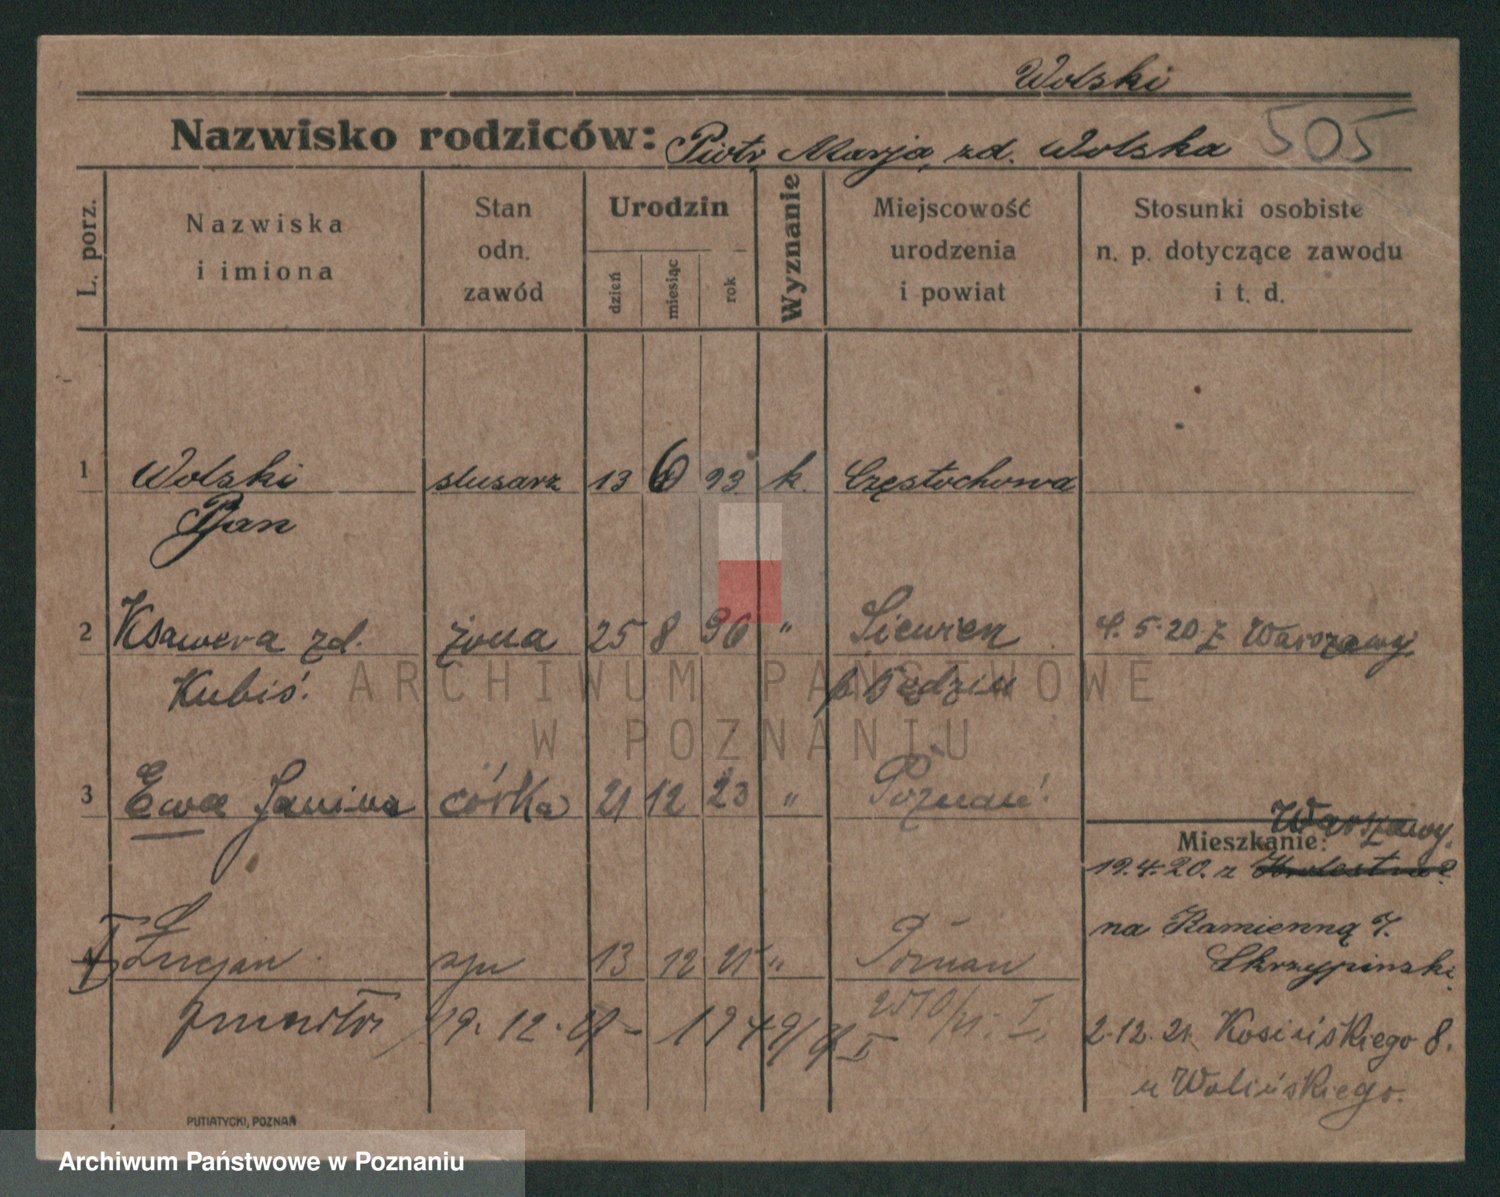 Wolski
Nazwisko rodziców: Piotr, Marja, zd. Wolska 505
L. porz.
Nazwiska
i imiona
Stan
odn.
zawód
Urodzin
dzień
miesiąc
rok
Wyznanie
Miejscowość
urodzenia
i powiat
Stosunki osobiste
n. p. dotyczące zawodu
i t. d.
1 Wolski slusarz 13 6 93 k. Częstochowa
Jan
2 Ksawera zd. żona 25 8 96 " Siewierz 4.5.20 z Warszawy
Kubiś. p Będzin
3 Ewa Janina córka 21 12 23 " Poznań.
Warszawy.
Mieszkanie:
19.4.20. z
4 Lucjan syn 13 12 25 " Poznan
na Kamienną 7.
Skrzypinski.
19.12.
2.12.21. Kosińskiego 8.
u Wolińskiego.
PUTIATYCKI, POZNAŃ
ARCHIWUM PAŃSTWOWE
W POZNANIU
Archiwum Państwowe w Poznaniu